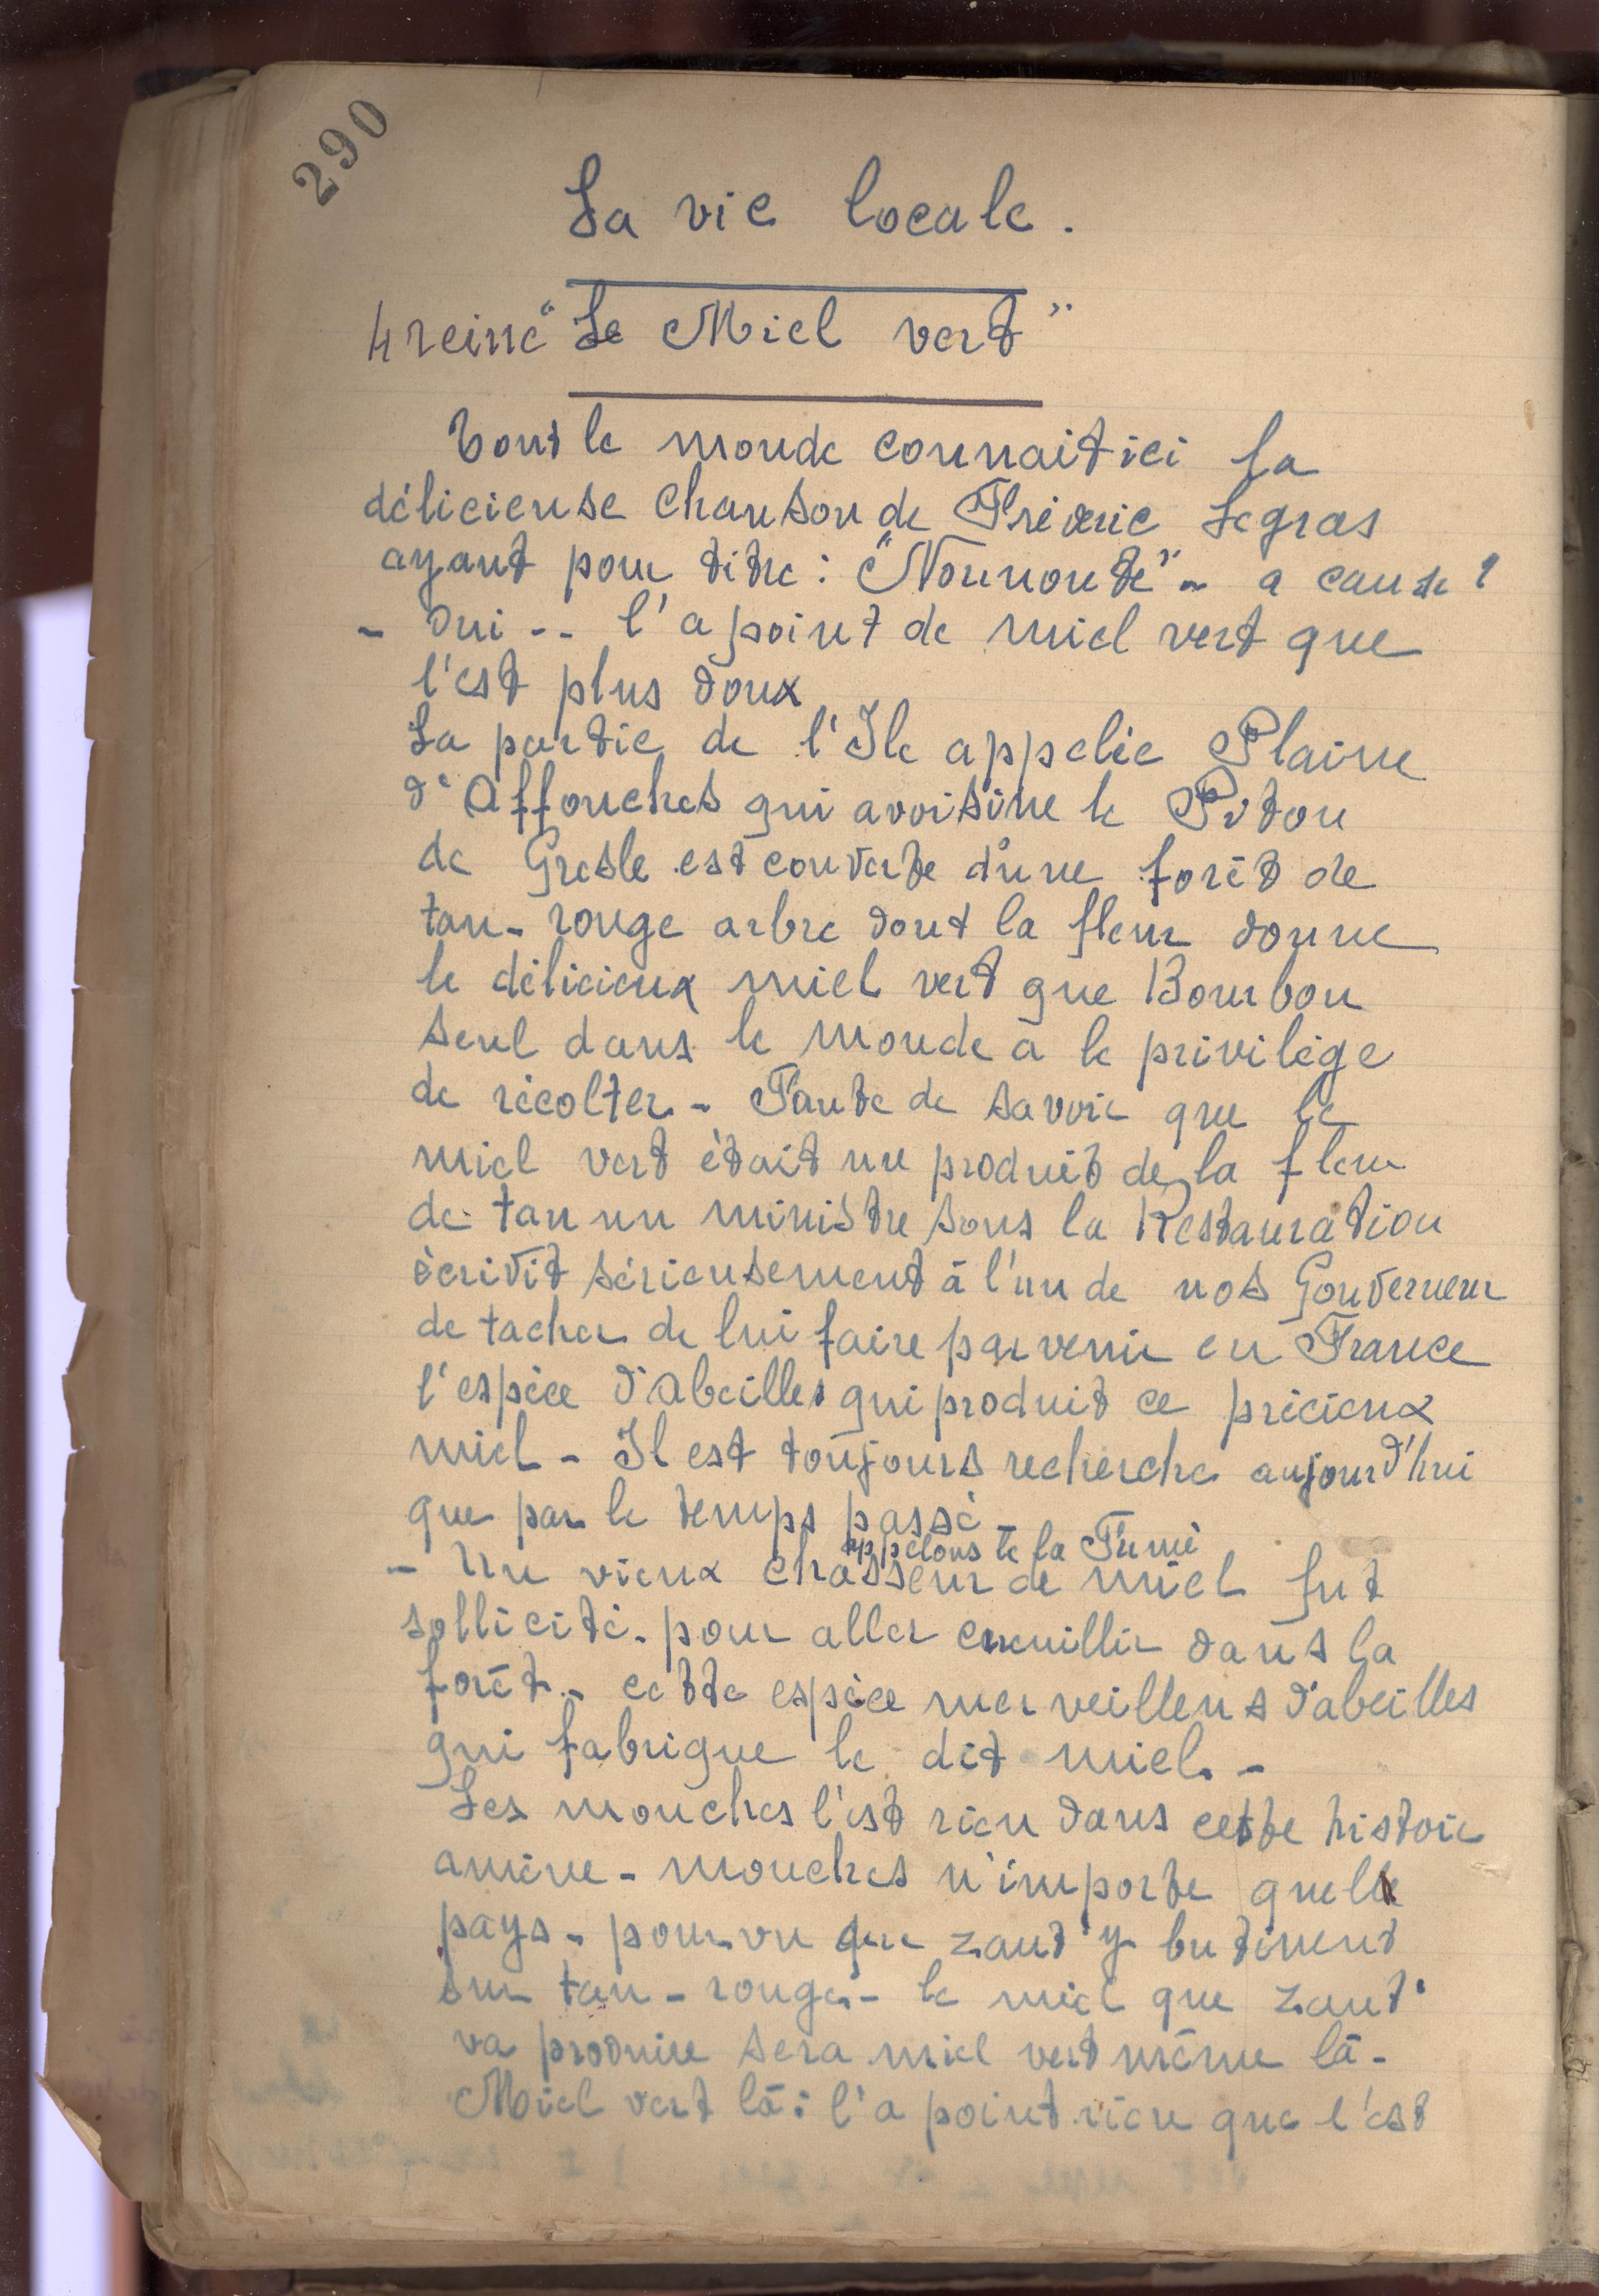 290
La vie locale.
4 reine "Le Miel vert"
Tout le monde connait ici la
délicieuse chanson de Fréderic Legras
ayant pour titre : "Nounoute" - a cause ?
- Oui -- l'a point de miel vert que
l'est plus doux
La partie de l'Ile appelée Plaine
d'Affouches qui avoisine le Piton
de Gresle est couverte d'une forêt de
tan-rouge arbre dont la fleur donne
le délicieux miel vert que Bourbon
seul dans le monde a le privilège
de récolter - Faute de savoir que le
miel vert était un produit de la fleur
de tan un ministre sous la Restauration
écrivit sérieusement à l'un de nos Gouverneur
de tacher de lui faire parvenir en France
l'espèce d'abeilles qui produit ce précieux
miel - Il est toujours recherche aujourd'hui
que par le temps passé -
appelons le la Fumé
- Un vieux chasseur de miel fut
sollicité - pour aller cueuillir dans la
forêt - cette espèce merveilleus d'abeilles
qui fabrique le dit miel. -
Les mouches l'est rien dans cette histoire
amène - mouches n'importe quelle
pays - pourvu que zaut'y butinent
sur tan-rouge - le miel que zaut'
va produire sera miel vert même là -
Miel vert là : l'a point rien que l'est